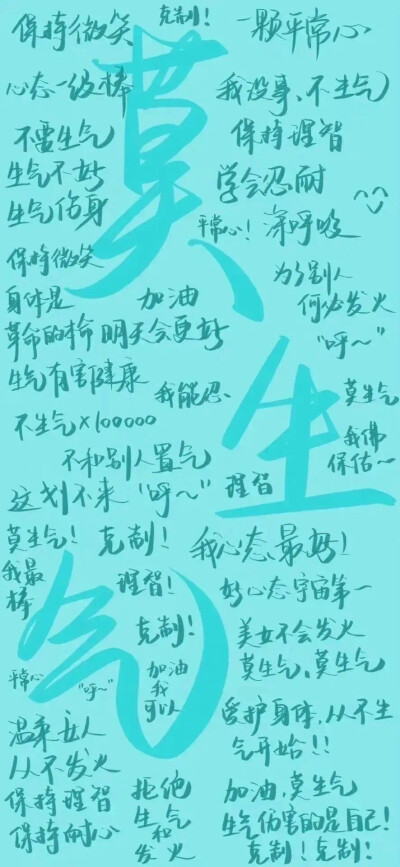 保持微笑
克制！
一颗平常心
心态一级棒
我没事、不生气
不需生气
保持理智
生气不好
学会忍耐
生气伤身
平常心！
深呼吸
保持微笑
为了别人
何必发火
身体是
革命的本钱
加油
明天会更好
"呼~"
生气有害健康
我能忍
莫生气
不生气×100000
我佛
保佑~
不和别人置气
这划不来
"呼~"
理智
莫生气！
克制！
我心态最好！
我最
棒
理智！
好心态宇宙第一
克制！
美女不会发火
莫生气、莫生气
平常心
"呼~"
加油
我
可以
爱护身体，从不生
气开始！！
温柔女人
从不发火
保持理智
保持耐心
拒绝
生气
和
发火
加油，莫生气
生气伤害的是自己！
克制！克制！
莫
生
气